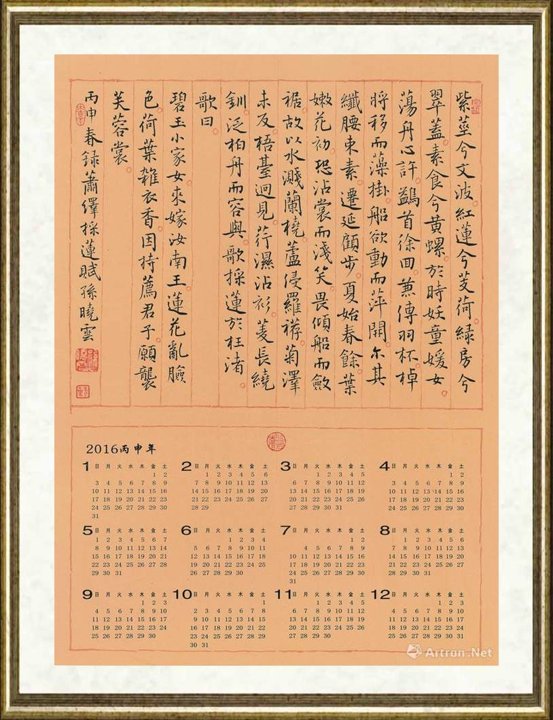 紫莖兮文波紅蓮兮芰荷綠房兮
翠蓋素食兮黃螺於時妖童媛女
蕩舟心許鷁首徐回兼傳羽杯棹
將移而藻掛船欲動而萍開尔其
纖腰束素遷延顧步夏始春餘葉
嫩花初恐沾裳而淺笑畏傾船而斂
裾故以水濺蘭橈蘆侵羅䙓菊澤
未反梧臺迥見荇濕沾衫菱長繞
釧泛柏舟而容與歌採蓮於枉渚
歌曰
碧玉小家女來嫁汝南王蓮花亂臉
色荷葉雜衣香因持薦君子願襲
芙蓉裳
丙申春錄蕭繹採蓮賦孫曉雲
2016丙申年
1 日 月 火 水 木 金 土
1 2
3 4 5 6 7 8 9
10 11 12 13 14 15 16
17 18 19 20 21 22 23
24 25 26 27 28 29 30
31
2 日 月 火 水 木 金 土
1 2 3 4 5 6
7 8 9 10 11 12 13
14 15 16 17 18 19 20
21 22 23 24 25 26 27
28 29
3 日 月 火 水 木 金 土
1 2 3 4 5
6 7 8 9 10 11 12
13 14 15 16 17 18 19
20 21 22 23 24 25 26
27 28 29 30 31
4 日 月 火 水 木 金 土
1 2
3 4 5 6 7 8 9
10 11 12 13 14 15 16
17 18 19 20 21 22 23
24 25 26 27 28 29 30
5 日 月 火 水 木 金 土
1 2 3 4 5 6 7
8 9 10 11 12 13 14
15 16 17 18 19 20 21
22 23 24 25 26 27 28
29 30 31
6 日 月 火 水 木 金 土
1 2 3 4
5 6 7 8 9 10 11
12 13 14 15 16 17 18
19 20 21 22 23 24 25
26 27 28 29 30
7 日 月 火 水 木 金 土
1 2
3 4 5 6 7 8 9
10 11 12 13 14 15 16
17 18 19 20 21 22 23
24 25 26 27 28 29 30
31
8 日 月 火 水 木 金 土
1 2 3 4 5 6
7 8 9 10 11 12 13
14 15 16 17 18 19 20
21 22 23 24 25 26 27
28 29 30 31
9 日 月 火 水 木 金 土
1 2 3
4 5 6 7 8 9 10
11 12 13 14 15 16 17
18 19 20 21 22 23 24
25 26 27 28 29 30
10 日 月 火 水 木 金 土
1
2 3 4 5 6 7 8
9 10 11 12 13 14 15
16 17 18 19 20 21 22
23 24 25 26 27 28 29
30 31
11 日 月 火 水 木 金 土
1 2 3 4 5
6 7 8 9 10 11 12
13 14 15 16 17 18 19
20 21 22 23 24 25 26
27 28 29 30
12 日 月 火 水 木 金 土
1 2 3
4 5 6 7 8 9 10
11 12 13 14 15 16 17
18 19 20 21 22 23 24
25 26 27 28 29 30 31
Artron.Net